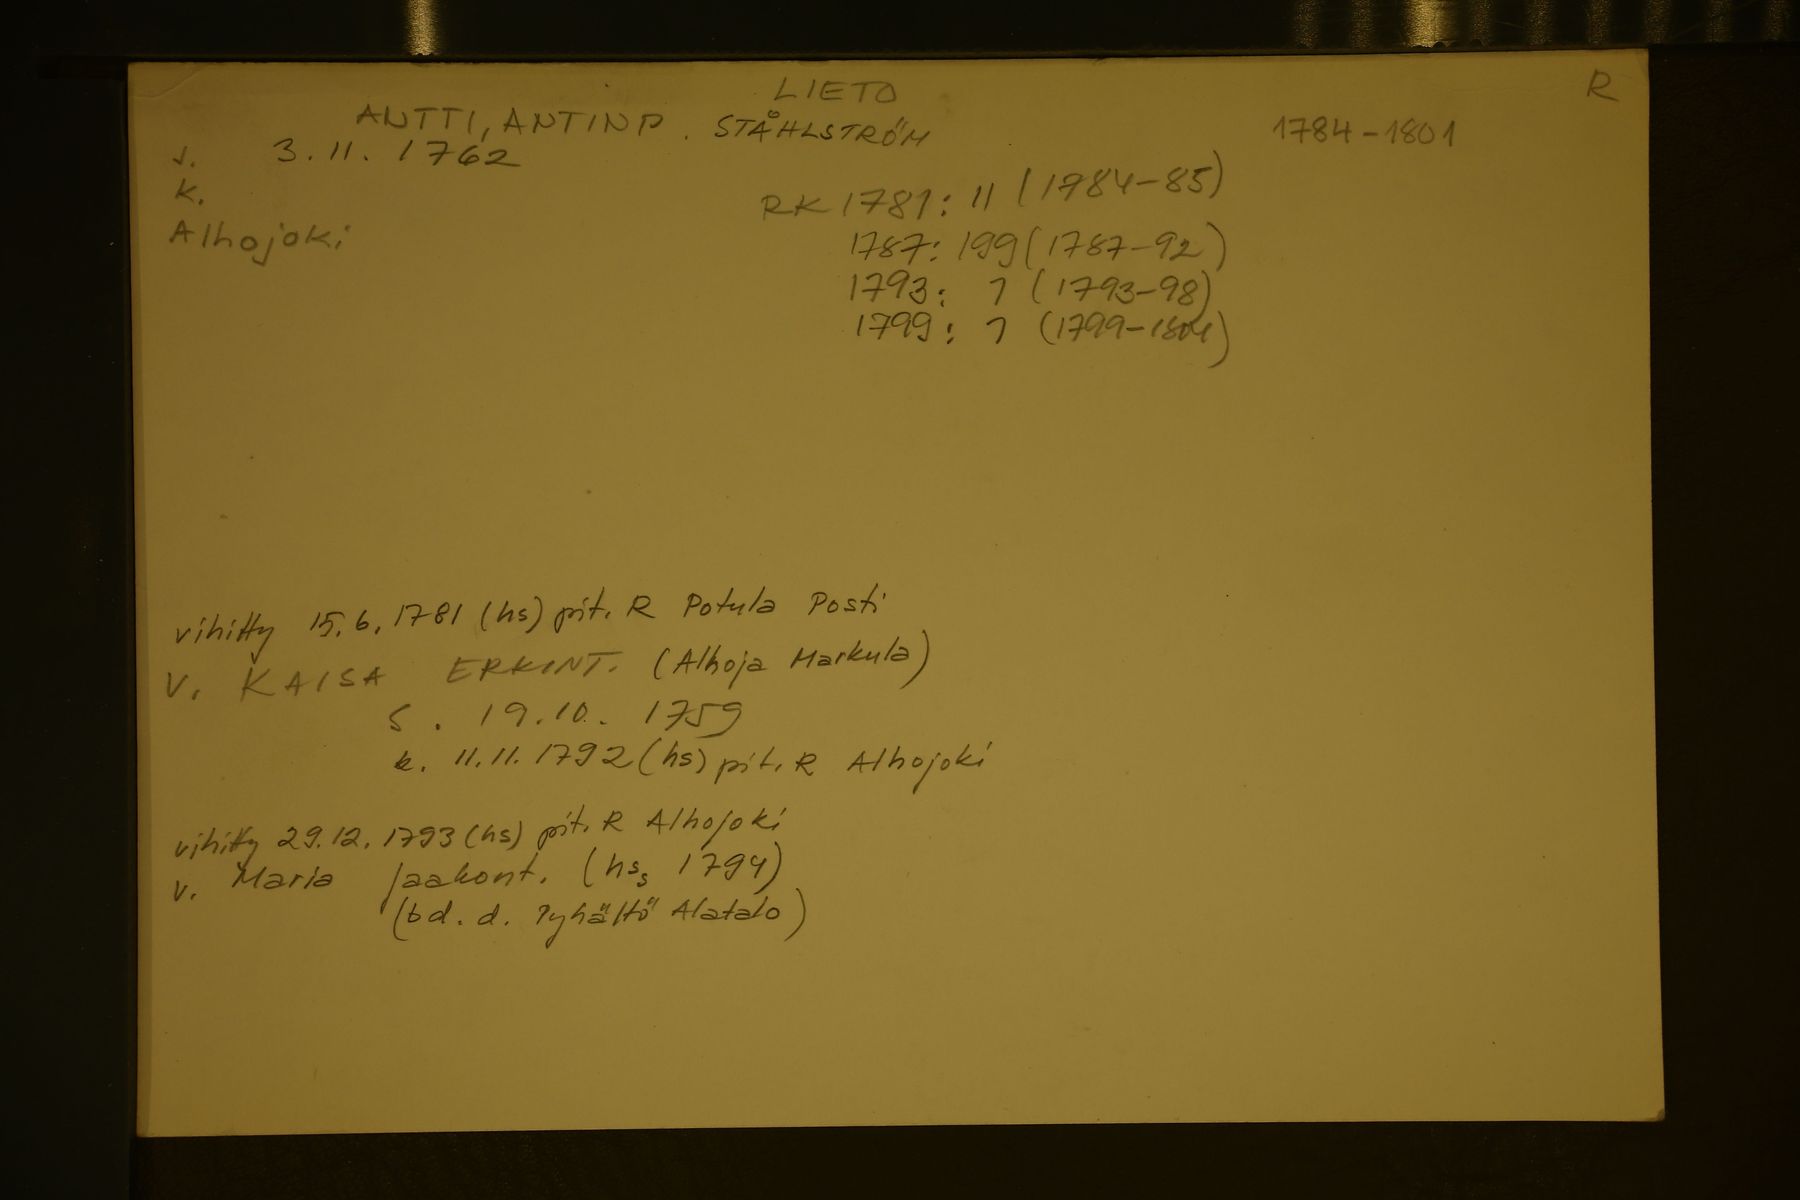 LIETO R
ANTTI, ANTINP. STÅHLSTRÖM 1784-1801
s. 3.11.1762
k. RK 1781: 11 (1784-85)
Alhojoki 1787: 199 (1787-92)
1793: 1 (1793-98)
1799: 1 (1799-1801)
vihitty 15.6.1781 (hs) pit. R Potula Posti
V. KAISA ERKINT. (Alhoja Markula)
s. 19.10.1759
k. 11.11.1792 (hs) pit. R Alhojoki
vihitty 29.12.1793 (hs) pit. R Alhojoki
v. Maria Jaakont. (hss 1794)
(bd. d. Pyhältö Alatalo)